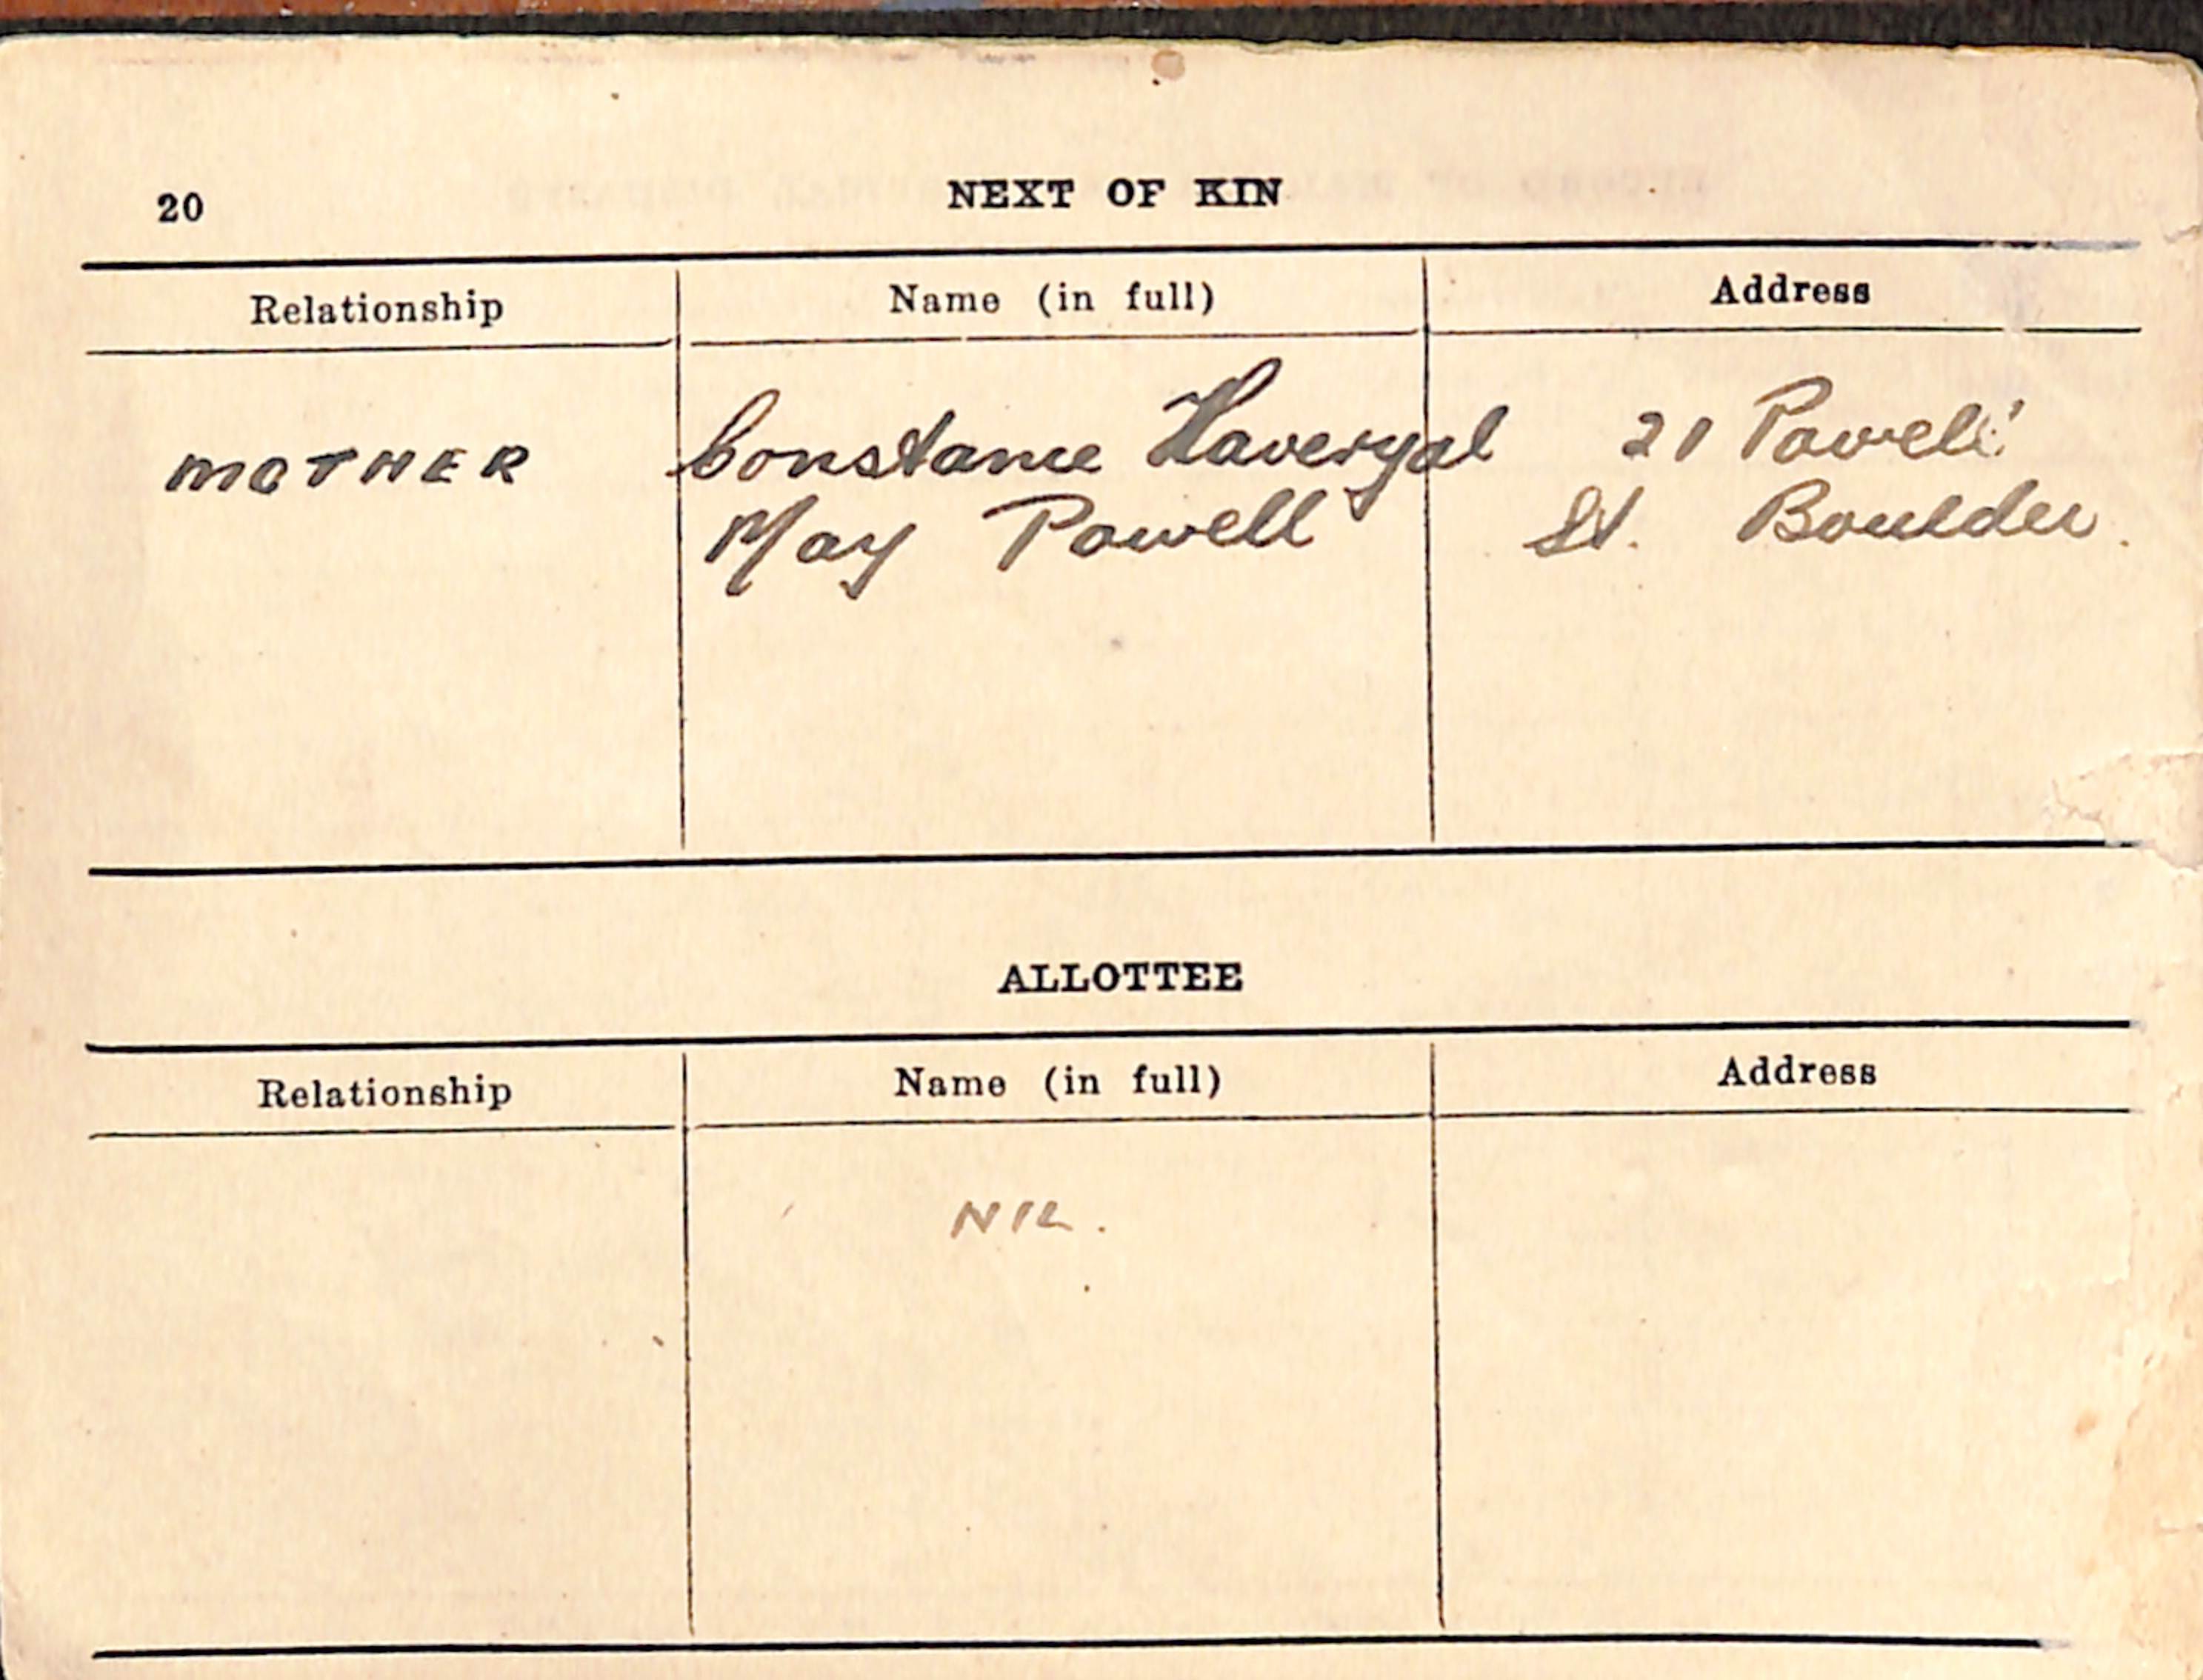 20
NEXT OF KIN
Relationship Name (in full) Address
MOTHER Constance Havergal 21 Powell
May Powell St. Boulder.
ALLOTTEE
Relationship Name (in full) Address
NIL.